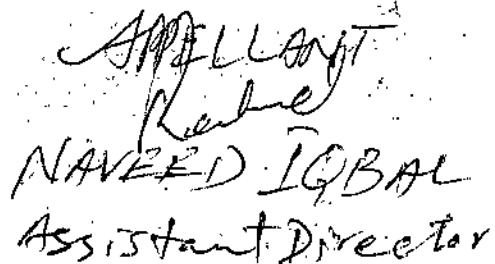 APPELLANT
NAVEED IQBAL
Assistant Director